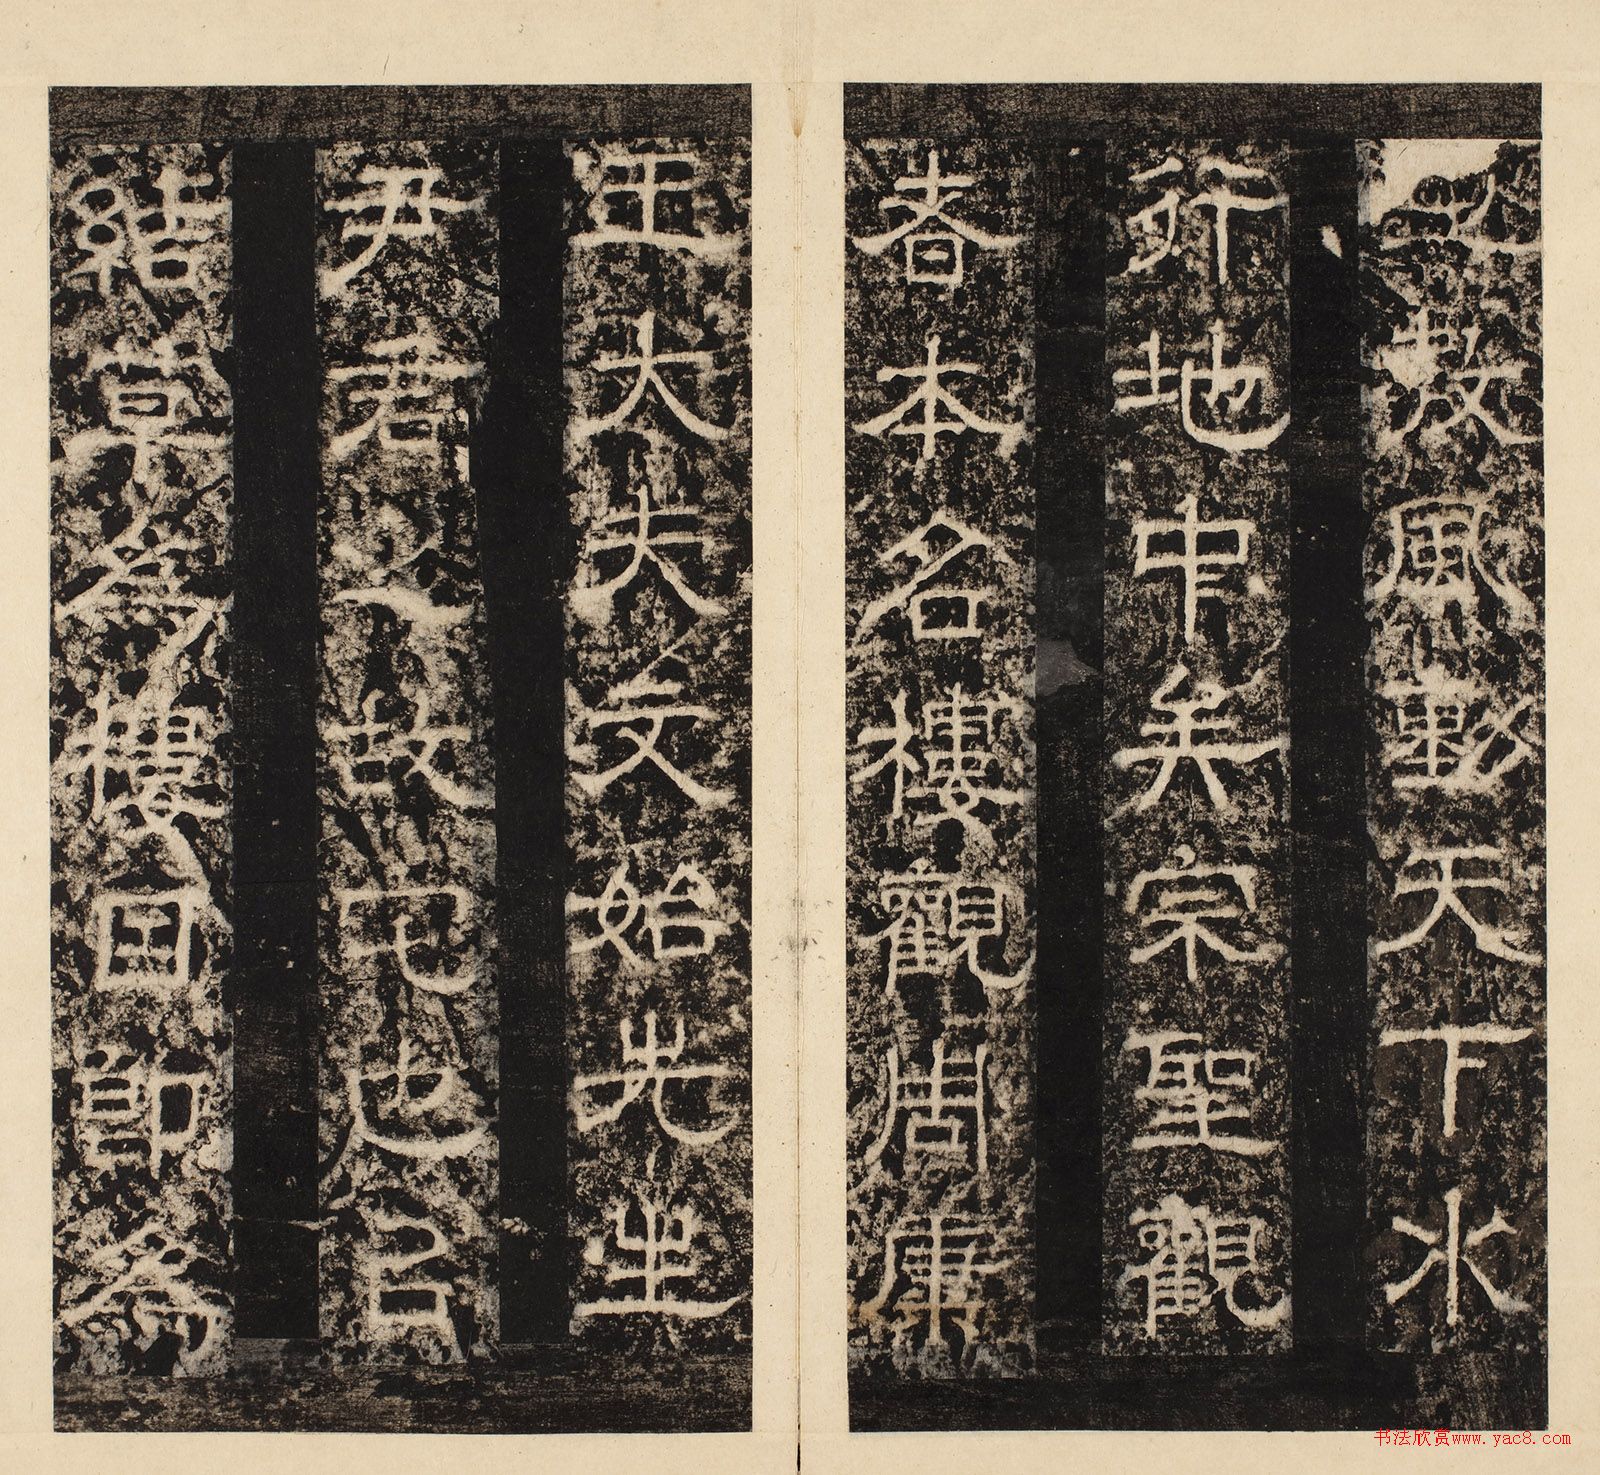 之教風動天下水
行地中矣宗聖觀
者本名樓觀周康
王大夫文始先生
尹君之故宅也以
結草為樓因即為
书法欣赏www.yac8.com